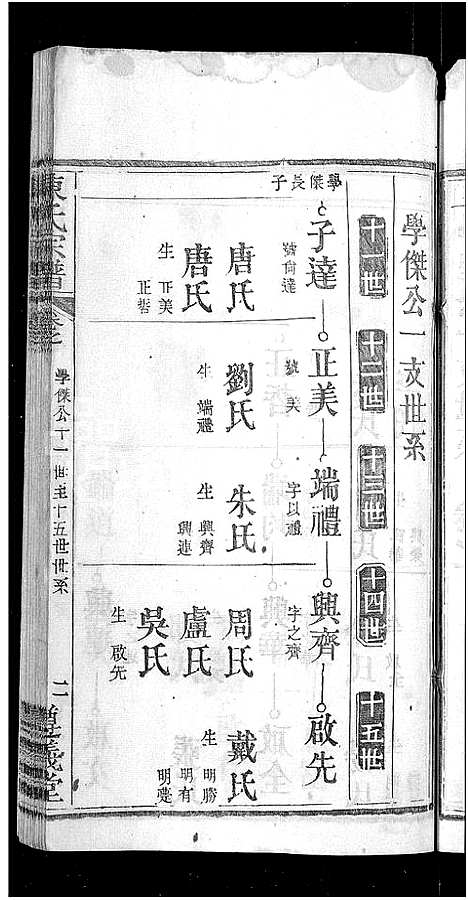 學傑公一支世系
十一世 十二世 十三世 十四世 十五世
學傑長子
子達 正美 端禮 興齊 啟先
號尚達
號 美
字以禮
字之齊
唐氏
唐氏
生 正美
正哲
劉氏
生 端禮
朱氏
生 興齊
興連
周氏
盧氏
吳氏
生 啟先
戴氏
生 明勝
明有
明亮
陳氏宗譜
卷之
學傑公十一世至十五世世系
二
義堂